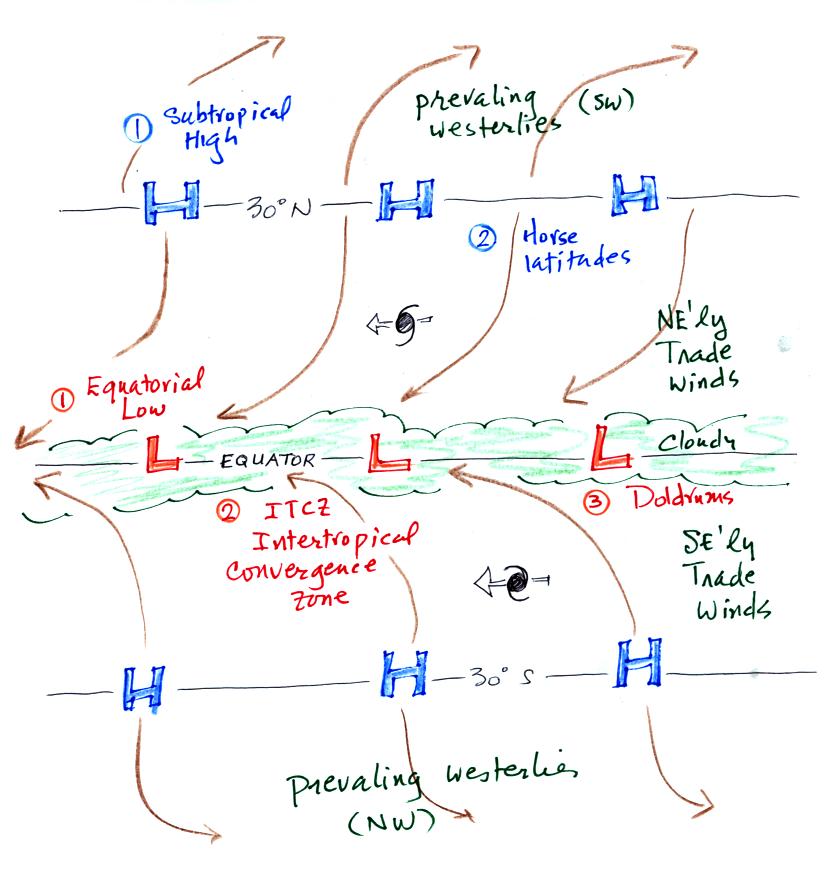 ① Subtropical
High
prevaling (SW)
westerlies
H 30° N H H
② Horse
latitudes
NE'ly
Trade
Winds
① Equatorial
Low
Cloudy
L EQUATOR L L
② ITCZ
Intertropical
Convergence
Zone
③ Doldrums
SE'ly
Trade
Winds
H H 30° S H
prevaling westerlies
(NW)